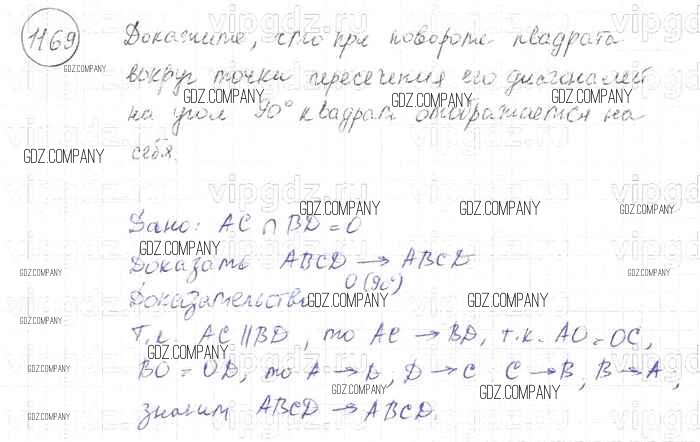 1169 Докажите, что при повороте квадрата
вокруг точки пересечения его диагоналей
на угол 90° квадрат отображается на
себя.
Дано: AC ∩ BD = O
Доказать ABCD → ABCD
O (90°)
Доказательство
Т.к. AC || BD, то AC → BD, т.к. AO = OC,
BO = OD, то A → D, D → C C → B, B → A,
значит ABCD → ABCD.
GDZ.COMPANY
vipgdz.ru